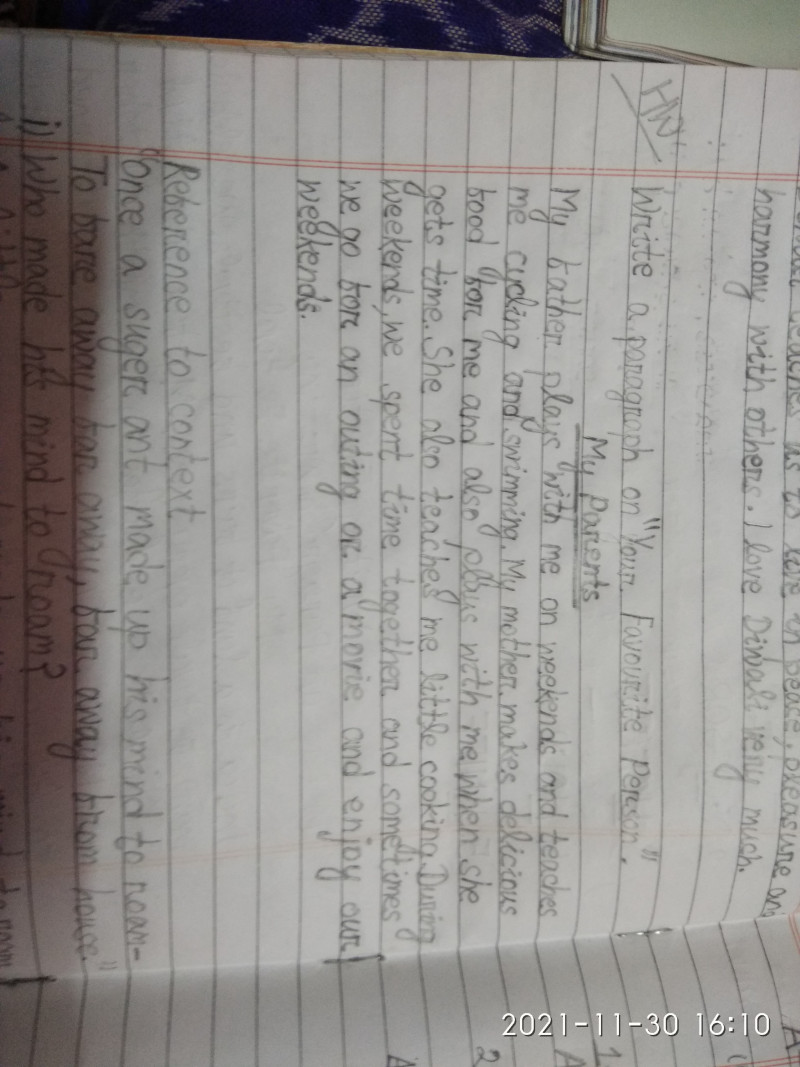 teaches us to live in peace, pleasure and
harmony with others. I love Diwali very much.
HW
Write a paragraph on "Your Favourite Person."
My parents
My father plays with me on weekends and teaches
me cycling and swimming. My mother makes delicious
food for me and also plays with me when she
gets time. She also teaches me little cooking. During
weekends, we spent time together and sometimes
we go for an outing or a movie and enjoy our
weekends.
Reference to context
"Once a suger ant made up his mind to roam-
To fare away far away, far away from house."
i) Who made his mind to roam?
mind to roam
1.
A
2
A
2021-11-30 16:10